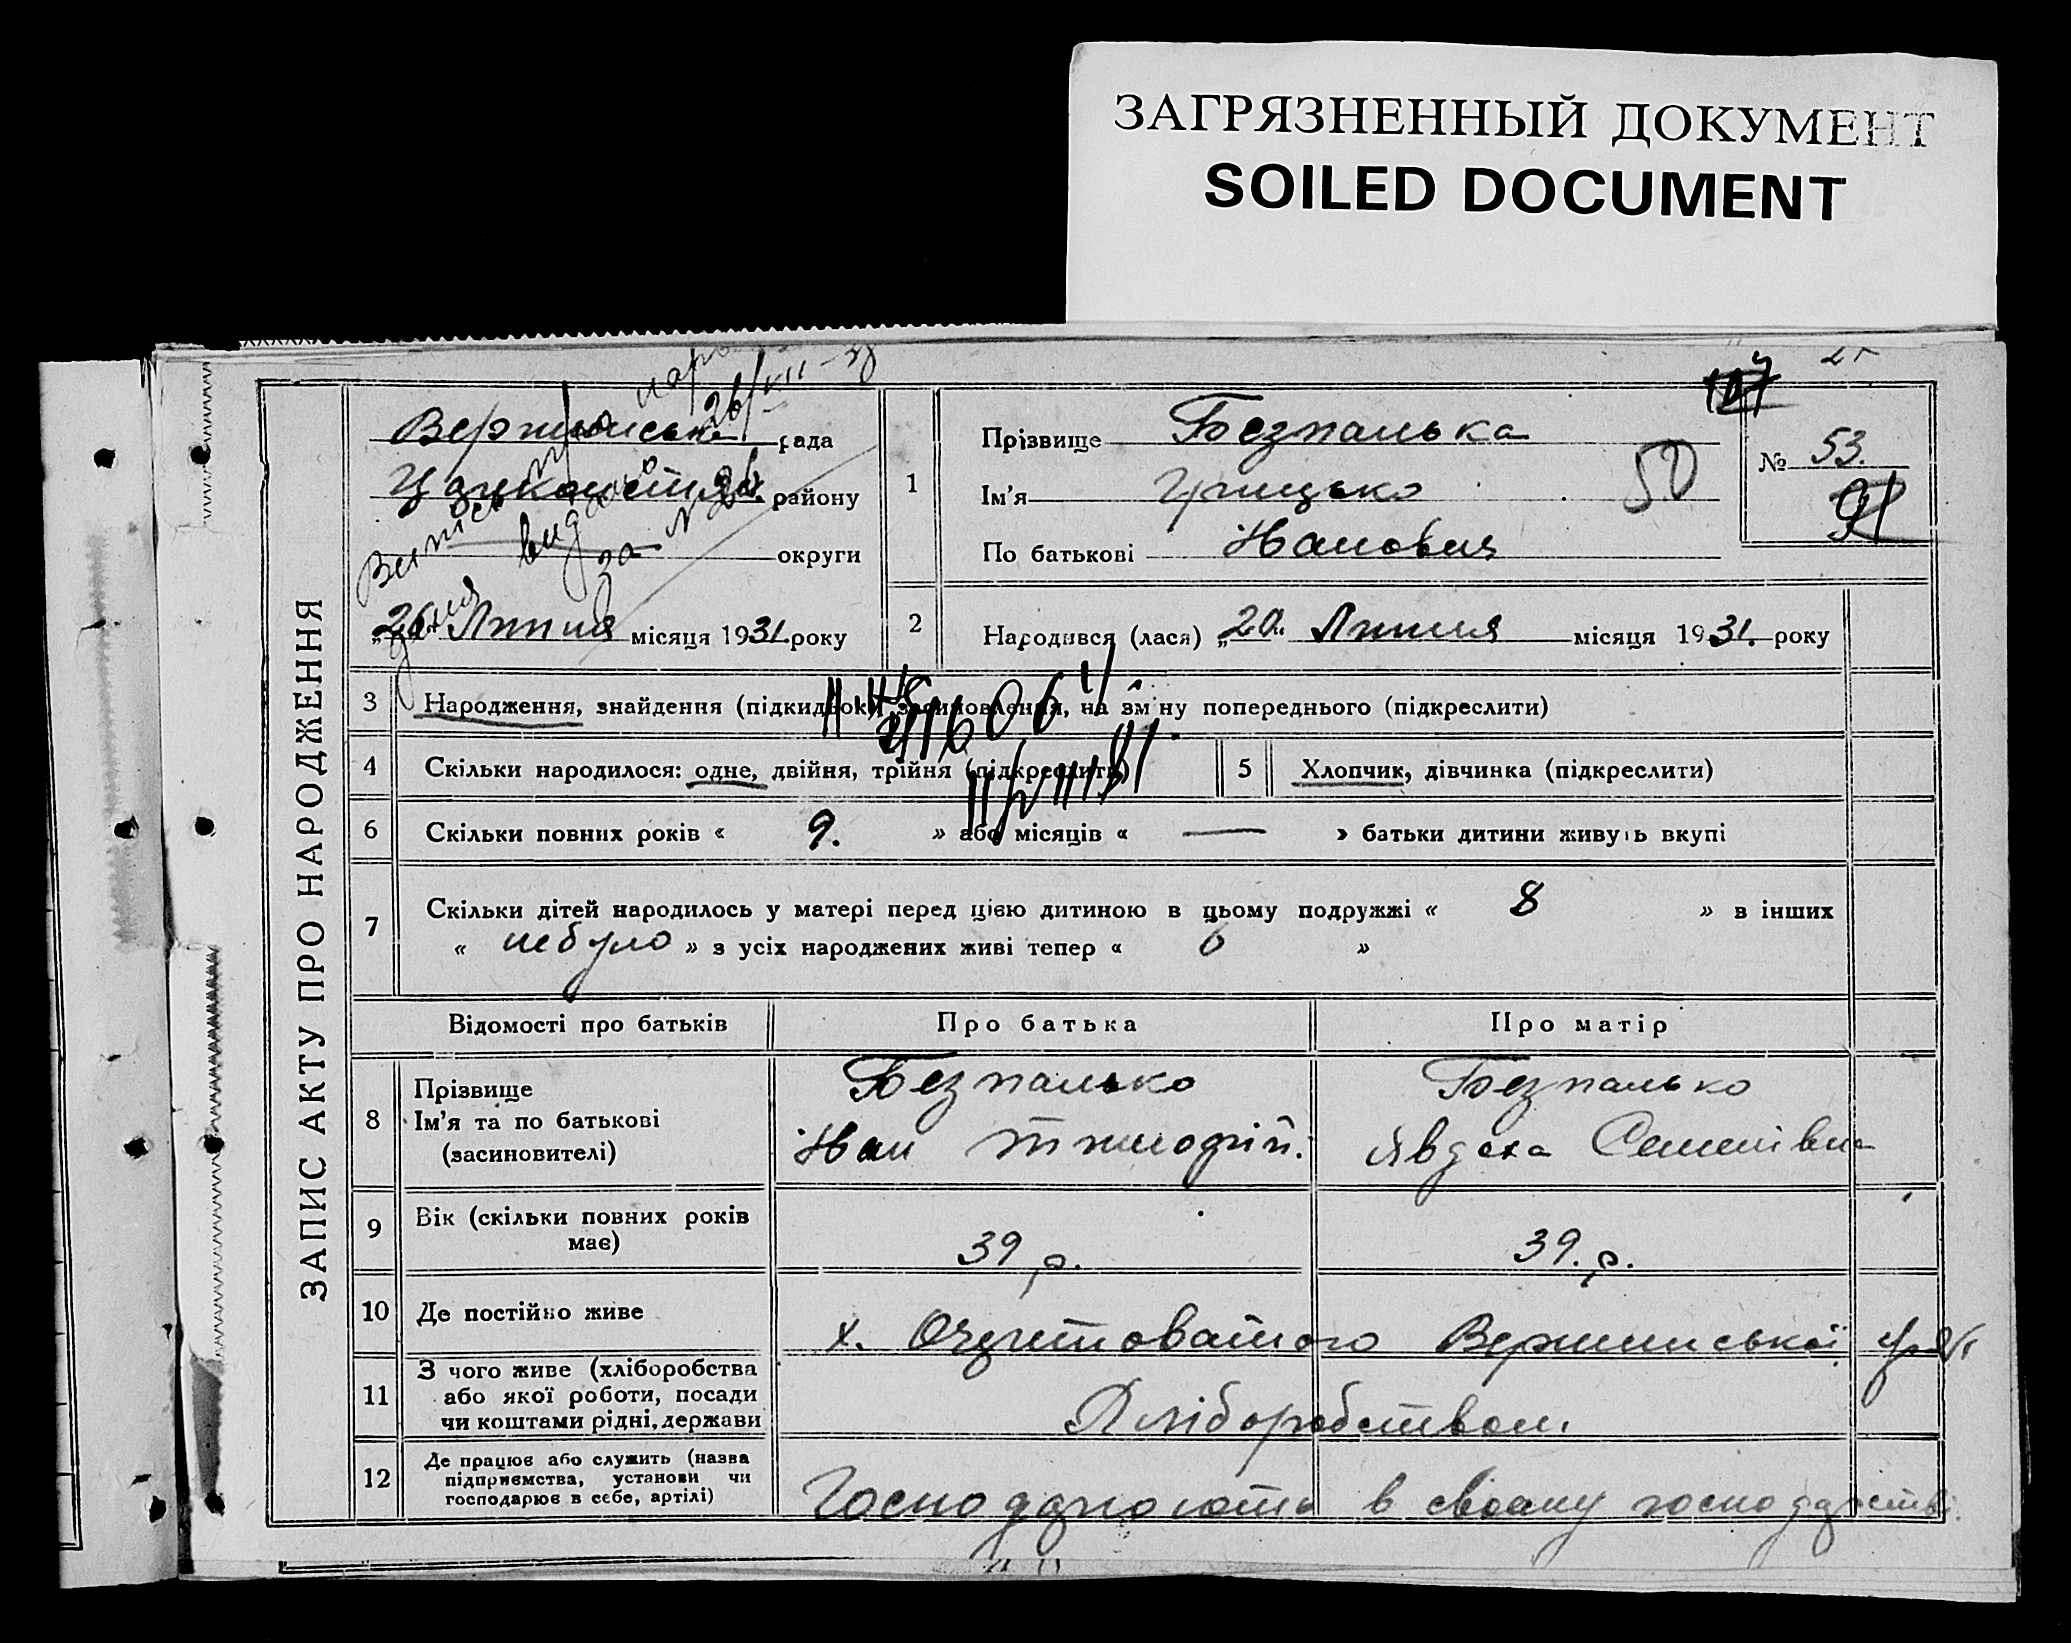 ЗАГРЯЗНЕННЫЙ ДОКУМЕНТ
SOILED DOCUMENT
ЗАПИС АКТУ ПРО НАРОДЖЕННЯ
рада
району
округи
„26“ Липня місяця 1931. року
1
Прізвище Безпалько
Ім'я Грицько
По батькові Иванович
50
№ 53.
91
2
Народився (лася) „20“ Липня місяця 1931. року
3 Народження, знайдення (підкидьок) засиновлення, на зміну попереднього (підкреслити)
4 Скільки народилося: одне, двійня, трійня (підкреслити)
5 Хлопчик, дівчинка (підкреслити)
6 Скільки повних років « 9. » або місяців « — » батьки дитини живуть вкупі
7 Скільки дітей народилось у матері перед цією дитиною в цьому подружжі « 8 » в інших
« небуло » з усіх народжених живі тепер « 6 »
Відомості про батьків Про батька Про матір
8 Прізвище
Ім'я та по батькові
(засиновителі)
Безпалько
Иван Тимофій.
Безпалько
Явдоха Семенівна
9 Вік (скільки повних років
має)
39 р.
39. р.
10 Де постійно живе
х. Очеретоватого
11 З чого живе (хліборобства
або якої роботи, посади
чи коштами рідні, держави
Хліборобством.
12 Де працює або служить (назва
підприємства, установи чи
господарює в себе, артілі)
Господарюють в своему господарстві.